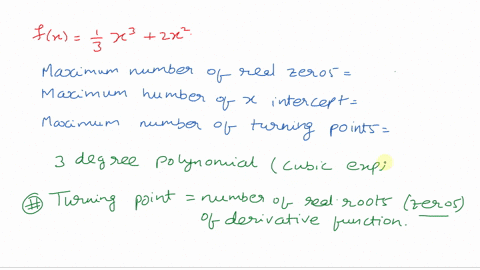 f(x) = 1/3 x³ + 2x².
Maximum number of real zeros =
Maximum number of x intercept =
Maximum number of turning points =
3 degree polynomial (cubic exp;
# Turning point = number of real roots (zeros)
of derivative function.